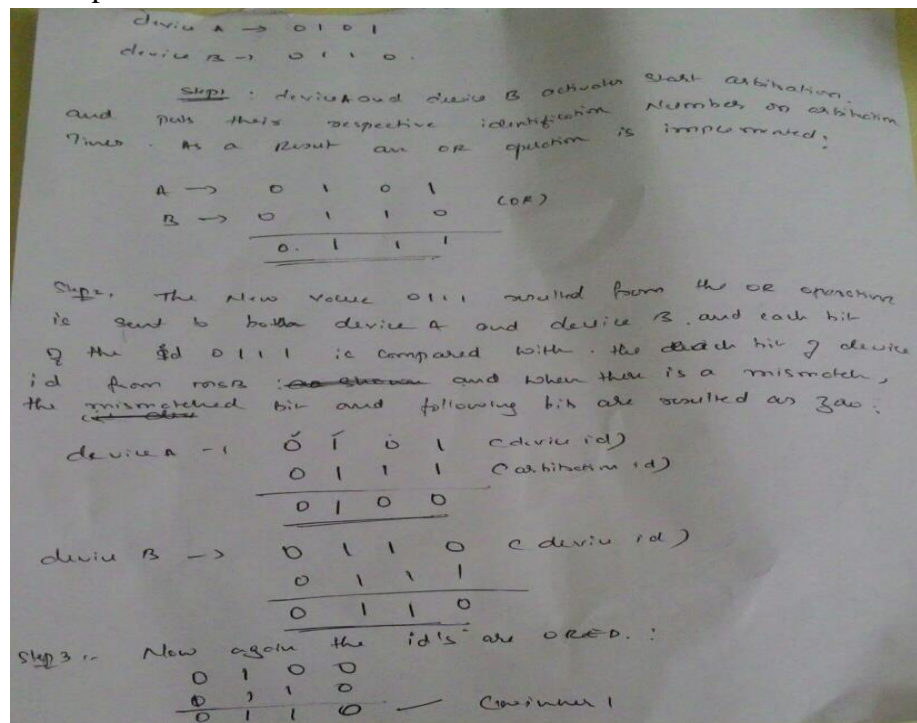 device A → 0 1 0 1
device B → 0 1 1 0.
Step1 : device A and device B activates start arbitration
and puts their respective identification Number on arbitration
lines. As a Result an OR operation is implemented;
A → 0 1 0 1
B → 0 1 1 0 (OR)
0. 1 1 1
Step2. The New value 0111 resulted from the OR operation
is sent to both device A and device B. and each bit
of the id 0 1 1 1 is compared with the each bit of device
id from MSB and when there is a mismatch,
the mismatched bit and following bits are resulted as zero:
device A - 1 0 1 0 1 (device id)
0 1 1 1 (arbitration id)
0 1 0 0
device B → 0 1 1 0 (device id)
0 1 1 1
0 1 1 0
Step 3 :- Now again the id's are ORED. :
0 1 0 0
0 1 1 0
0 1 1 0 — (winner)